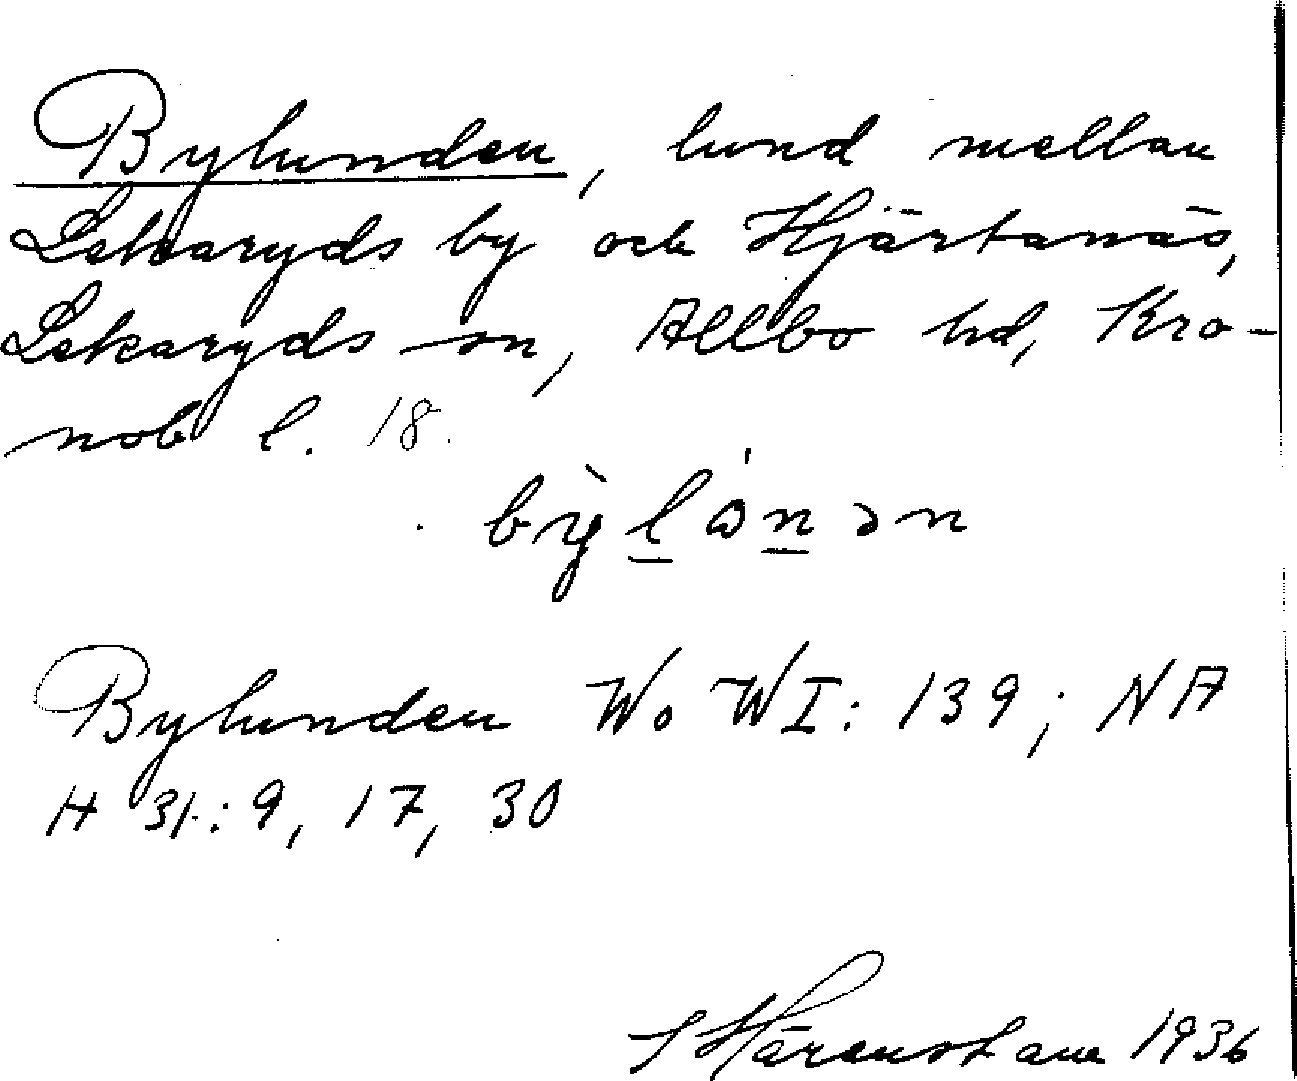 Bylunden, lund mellan
Lekaryds by och Hjärtanäs,
Lekaryds sn, Allbo hd, Kro-
nob l. 18.
bỳlɷ́nən
Bylunden Wo WI: 139; NA
H 31:9, 17, 30
S Härenstam 1936